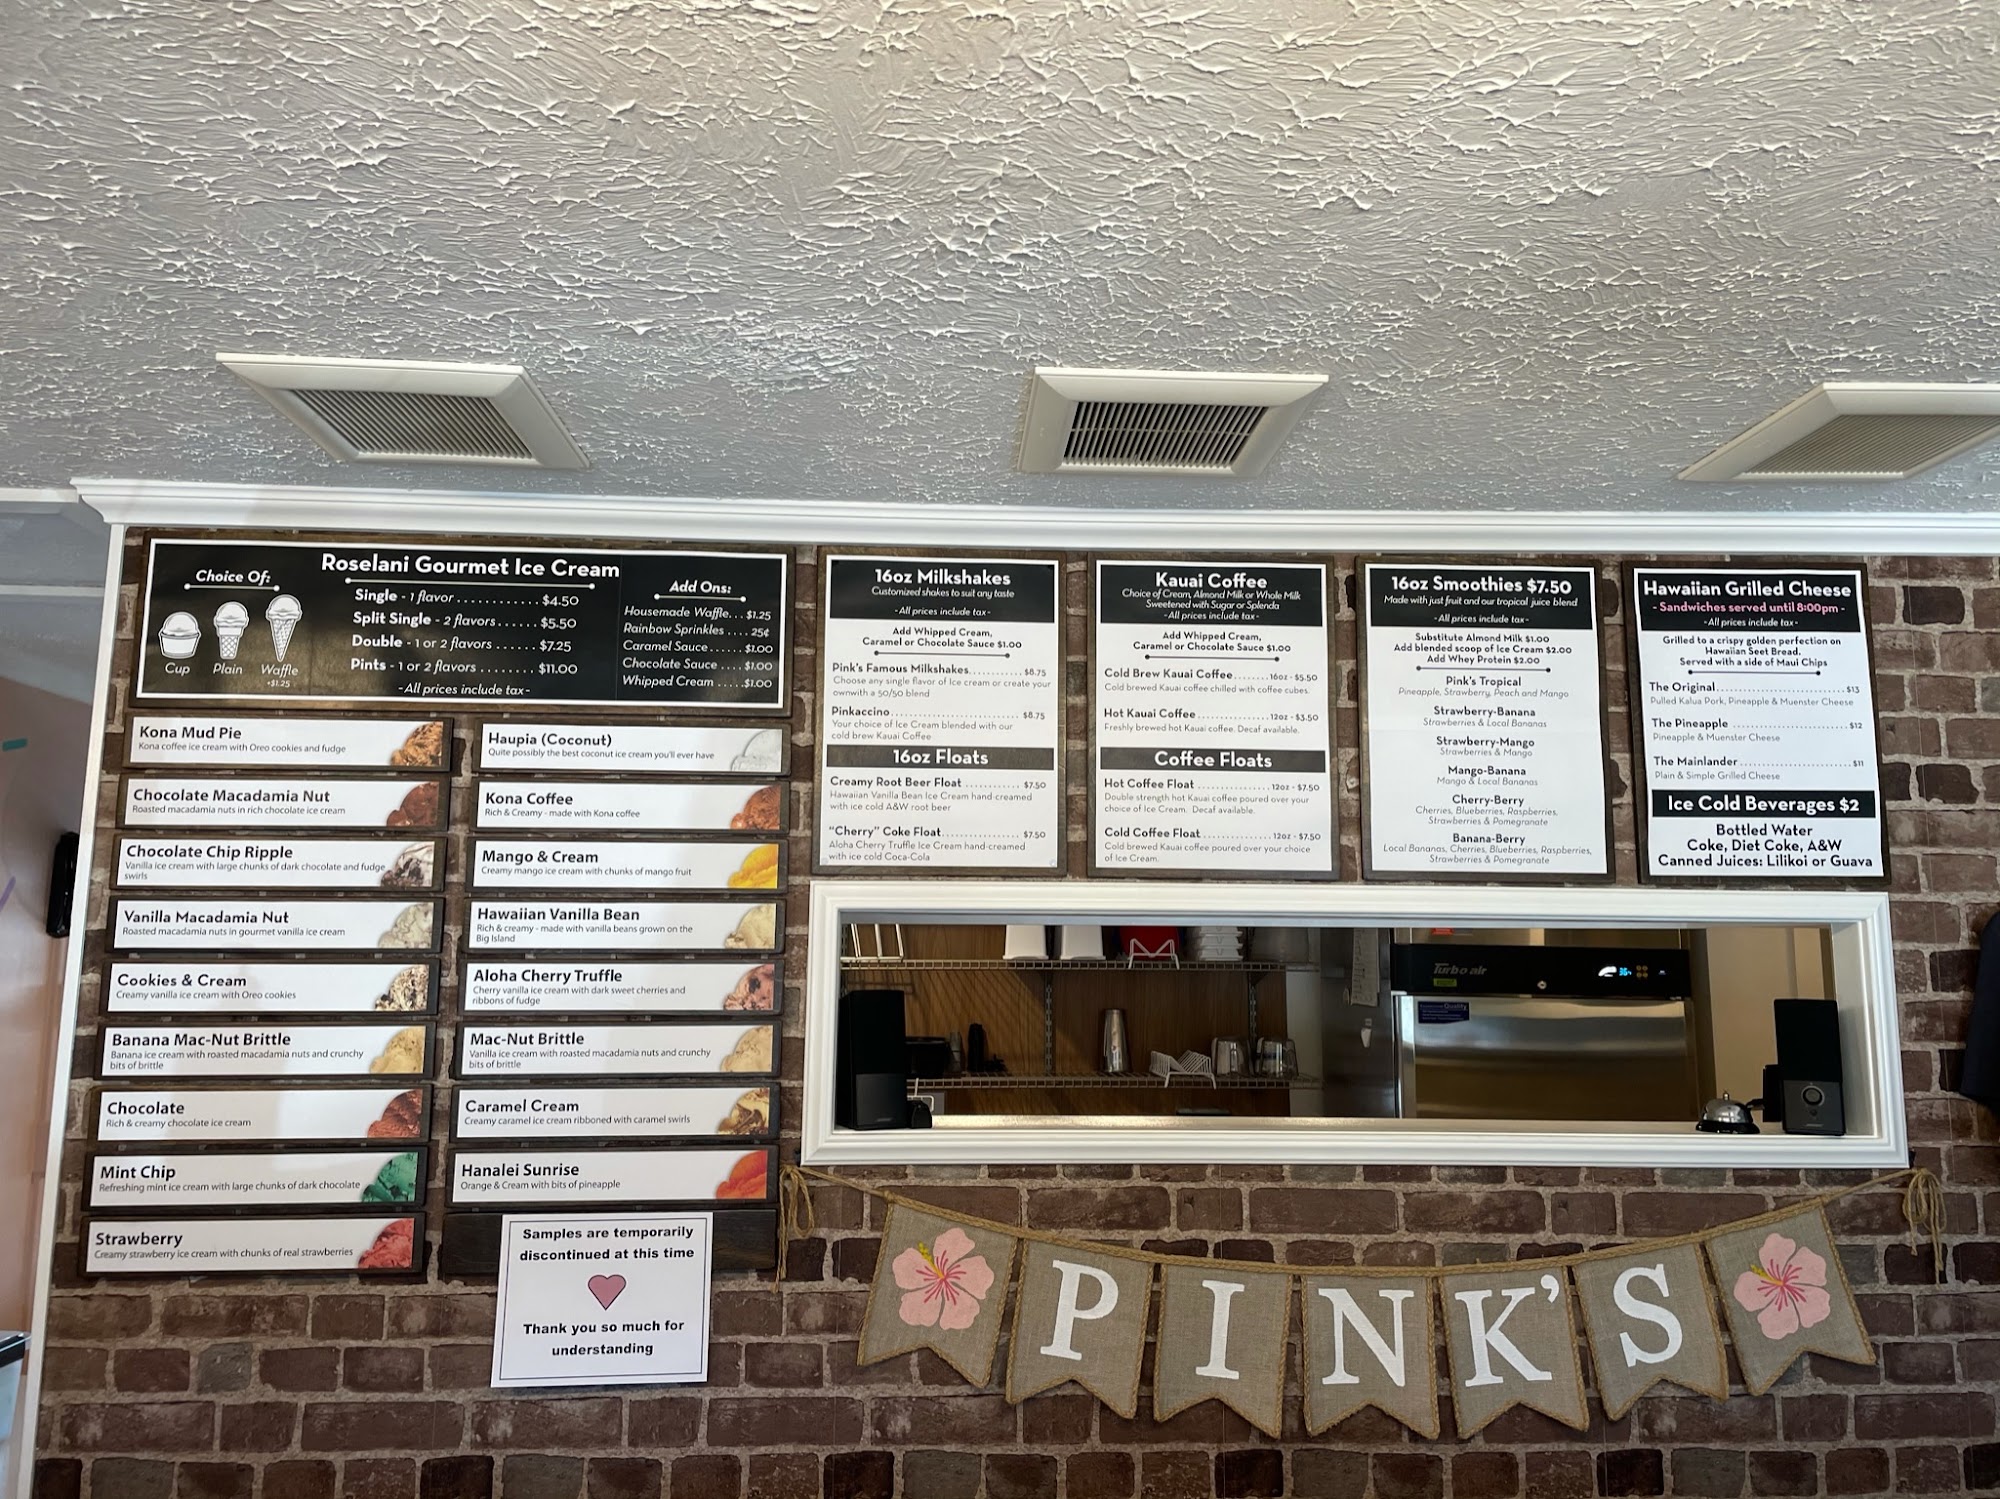 Roselani Gourmet Ice Cream
Choice Of:
Cup
Plain
Waffle
+$1.25
Single - 1 flavor ............ $4.50
Split Single - 2 flavors...... $5.50
Double - 1 or 2 flavors ...... $7.25
Pints - 1 or 2 flavors ........ $11.00
- All prices include tax -
Add Ons:
Housemade Waffle... $1.25
Rainbow Sprinkles .... 25¢
Caramel Sauce ...... $1.00
Chocolate Sauce .... $1.00
Whipped Cream ..... $1.00
Kona Mud Pie
Kona coffee ice cream with Oreo cookies and fudge
Chocolate Macadamia Nut
Roasted macadamia nuts in rich chocolate ice cream
Chocolate Chip Ripple
Vanilla ice cream with large chunks of dark chocolate and fudge
swirls
Vanilla Macadamia Nut
Roasted macadamia nuts in gourmet vanilla ice cream
Cookies & Cream
Creamy vanilla ice cream with Oreo cookies
Banana Mac-Nut Brittle
Banana ice cream with roasted macadamia nuts and crunchy
bits of brittle
Chocolate
Rich & creamy chocolate ice cream
Mint Chip
Refreshing mint ice cream with large chunks of dark chocolate
Strawberry
Creamy strawberry ice cream with chunks of real strawberries
Haupia (Coconut)
Quite possibly the best coconut ice cream you'll ever have
Kona Coffee
Rich & Creamy - made with Kona coffee
Mango & Cream
Creamy mango ice cream with chunks of mango fruit
Hawaiian Vanilla Bean
Rich & creamy - made with vanilla beans grown on the
Big Island
Aloha Cherry Truffle
Cherry vanilla ice cream with dark sweet cherries and
ribbons of fudge
Mac-Nut Brittle
Vanilla ice cream with roasted macadamia nuts and crunchy
bits of brittle
Caramel Cream
Creamy caramel ice cream ribboned with caramel swirls
Hanalei Sunrise
Orange & Cream with bits of pineapple
Samples are temporarily
discontinued at this time
Thank you so much for
understanding
16oz Milkshakes
Customized shakes to suit any taste
- All prices include tax -
Add Whipped Cream,
Caramel or Chocolate Sauce $1.00
Pink's Famous Milkshakes............ $8.75
Choose any single flavor of Ice cream or create your
ownwith a 50/50 blend
Pinkaccino ............................ $8.75
Your choice of Ice Cream blended with our
cold brew Kauai Coffee
16oz Floats
Creamy Root Beer Float ............. $7.50
Hawaiian Vanilla Bean Ice Cream hand-creamed
with ice cold A&W root beer
"Cherry" Coke Float................. $7.50
Aloha Cherry Truffle Ice Cream hand-creamed
with ice cold Coca-Cola
Kauai Coffee
Choice of Cream, Almond Milk or Whole Milk
Sweetened with Sugar or Splenda
- All prices include tax -
Add Whipped Cream,
Caramel or Chocolate Sauce $1.00
Cold Brew Kauai Coffee........ 16oz - $5.50
Cold brewed Kauai coffee chilled with coffee cubes.
Hot Kauai Coffee ................ 12oz - $3.50
Freshly brewed hot Kauai coffee. Decaf available.
Coffee Floats
Hot Coffee Float ................. 12oz - $7.50
Double strength hot Kauai coffee poured over your
choice of Ice Cream. Decaf available.
Cold Coffee Float ............... 12oz - $7.50
Cold brewed Kauai coffee poured over your choice
of Ice Cream.
16oz Smoothies $7.50
Made with just fruit and our tropical juice blend
- All prices include tax -
Substitute Almond Milk $1.00
Add blended scoop of Ice Cream $2.00
Add Whey Protein $2.00
Pink's Tropical
Pineapple, Strawberry, Peach and Mango
Strawberry-Banana
Strawberries & Local Bananas
Strawberry-Mango
Strawberries & Mango
Mango-Banana
Mango & Local Bananas
Cherry-Berry
Cherries, Blueberries, Raspberries,
Strawberries & Pomegranate
Banana-Berry
Local Bananas, Cherries, Blueberries, Raspberries,
Strawberries & Pomegranate
Hawaiian Grilled Cheese
- Sandwiches served until 8:00pm -
- All prices include tax -
Grilled to a crispy golden perfection on
Hawaiian Seet Bread.
Served with a side of Maui Chips
The Original .......................... $13
Pulled Kalua Pork, Pineapple & Muenster Cheese
The Pineapple ........................ $12
Pineapple & Muenster Cheese
The Mainlander ....................... $11
Plain & Simple Grilled Cheese
Ice Cold Beverages $2
Bottled Water
Coke, Diet Coke, A&W
Canned Juices: Lilikoi or Guava
Turbo air
Quality
PINK'S